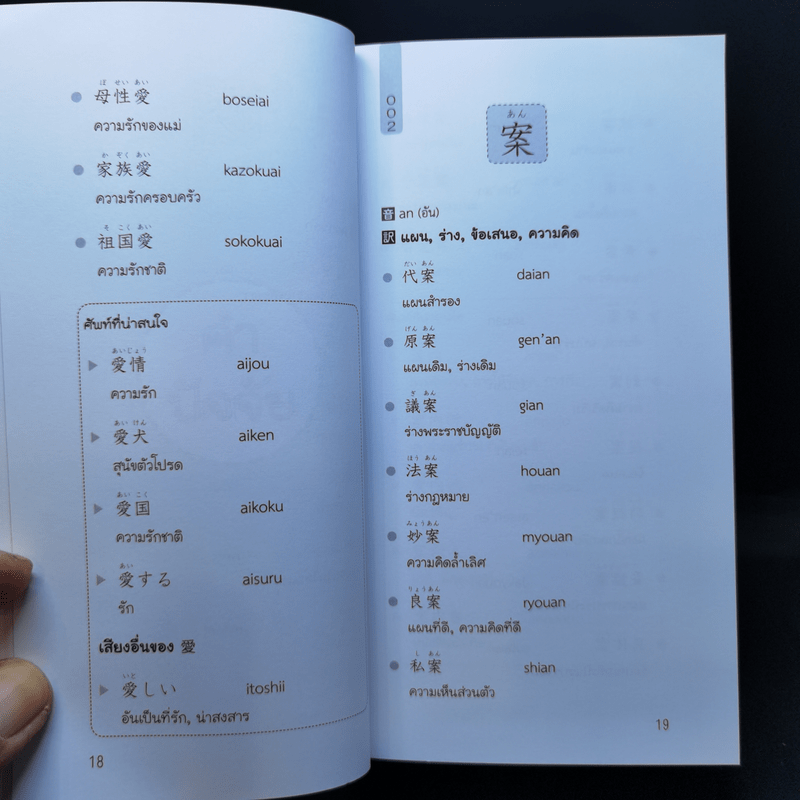 ぼ せい あい
母性愛 boseiai
ความรักของแม่
か ぞく あい
家族愛 kazokuai
ความรักครอบครัว
そ こく あい
祖国愛 sokokuai
ความรักชาติ
ศัพท์ที่น่าสนใจ
あいじょう
愛情 aijou
ความรัก
あい けん
愛犬 aiken
สุนัขตัวโปรด
あい こく
愛国 aikoku
ความรักชาติ
あい
愛する aisuru
รัก
เสียงอื่นของ 愛
いと
愛しい itoshii
อันเป็นที่รัก, น่าสงสาร
18
002
あん
案
音 an (อัน)
訳 แผน, ร่าง, ข้อเสนอ, ความคิด
だい あん
代案 daian
แผนสำรอง
げん あん
原案 gen'an
แผนเดิม, ร่างเดิม
ぎ あん
議案 gian
ร่างพระราชบัญญัติ
ほう あん
法案 houan
ร่างกฎหมาย
みょうあん
妙案 myouan
ความคิดล้ำเลิศ
りょうあん
良案 ryouan
แผนที่ดี, ความคิดที่ดี
し あん
私案 shian
ความเห็นส่วนตัว
19